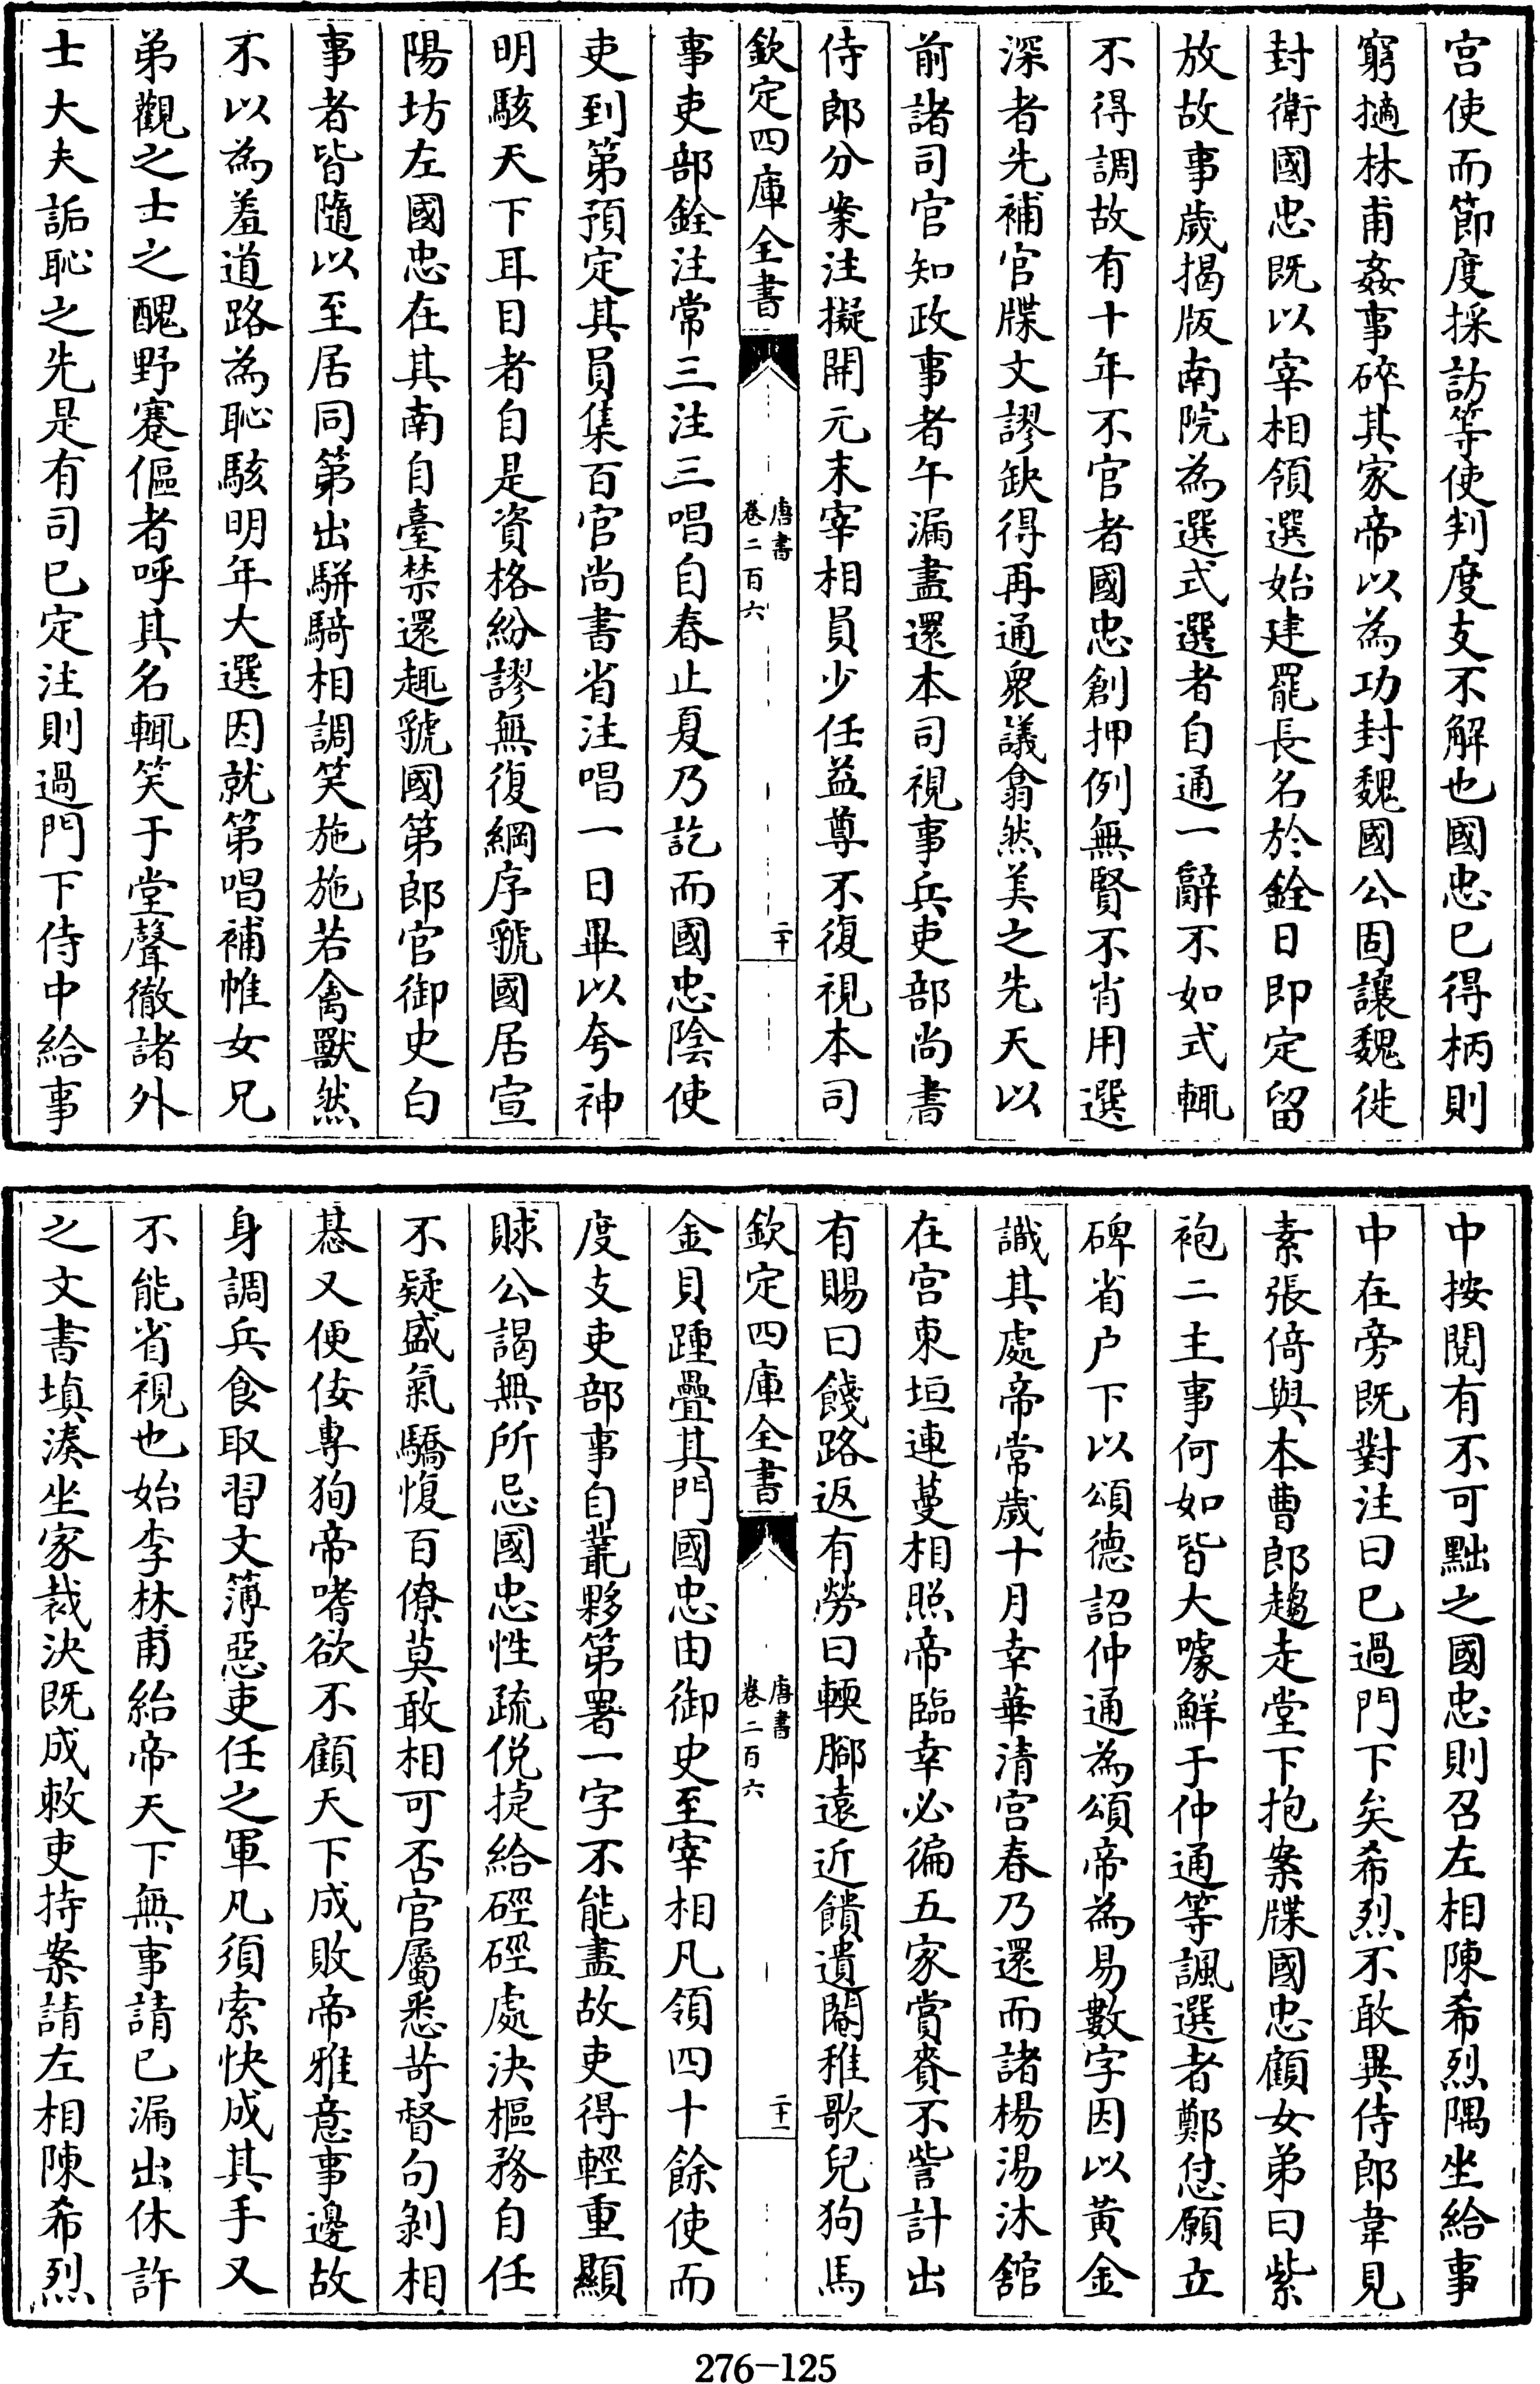 宫使而節度採訪等使判度支不解也國忠已得柄則
窮擿林甫姦事碎其家帝以為功封魏國公固讓魏徙
封衛國忠既以宰相領選始建罷長名於銓日即定留
放故事歲揭版南院為選式選者自通一辭不如式輒
不得調故有十年不官者國忠創押例無賢不肖用選
深者先補官牒文謬缺得再通衆議翕然美之先天以
前諸司官知政事者午漏盡還本司視事兵吏部尚書
侍郎分案注擬開元末宰相員少任益尊不復視本司
欽定四庫全書
唐書
卷二百六
二十
事吏部銓注常三注三唱自春止夏乃訖而國忠陰使
吏到第預定其員集百官尚書省注唱一日畢以夸神
明駭天下耳目者自是資格紛謬無復綱序虢國居宣
陽坊左國忠在其南自臺禁還趣虢國第郎官御史白
事者皆隨以至居同第出駢騎相調笑施施若禽獸然
不以為羞道路為恥駭明年大選因就第唱補帷女兄
弟觀之士之醜野蹇傴者呼其名輒笑于堂聲徹諸外
士大夫詬恥之先是有司已定注則過門下侍中給事
中按閱有不可黜之國忠則召左相陳希烈隅坐給事
中在旁既對注曰已過門下矣希烈不敢異侍郎韋見
素張倚與本曹郎趨走堂下抱案牒國忠顧女弟曰紫
袍二主事何如皆大噱鮮于仲通等諷選者鄭怤願立
碑省户下以頌德詔仲通為頌帝為易數字因以黃金
識其處帝常歲十月幸華清宫春乃還而諸楊湯沐館
在宫東垣連蔓相照帝臨幸必徧五家賞賚不訾計出
有賜曰餞路返有勞曰輭腳遠近饋遺閹稚歌兒狗馬
欽定四庫全書
唐書
卷二百六
二十一
金貝踵疊其門國忠由御史至宰相凡領四十餘使而
度支吏部事自叢夥第署一字不能盡故吏得輕重顯
賕公謁無所忌國忠性疏侻捷給硜硜處決樞務自任
不疑盛氣驕愎百僚莫敢相可否官屬悉苛督句剝相
惎又便佞專狥帝嗜欲不顧天下成敗帝雅意事邊故
身調兵食取習文簿惡吏任之軍凡須索快成其手又
不能省視也始李林甫紿帝天下無事請已漏出休許
之文書填湊坐家裁決既成敕吏持案請左相陳希烈
276-125